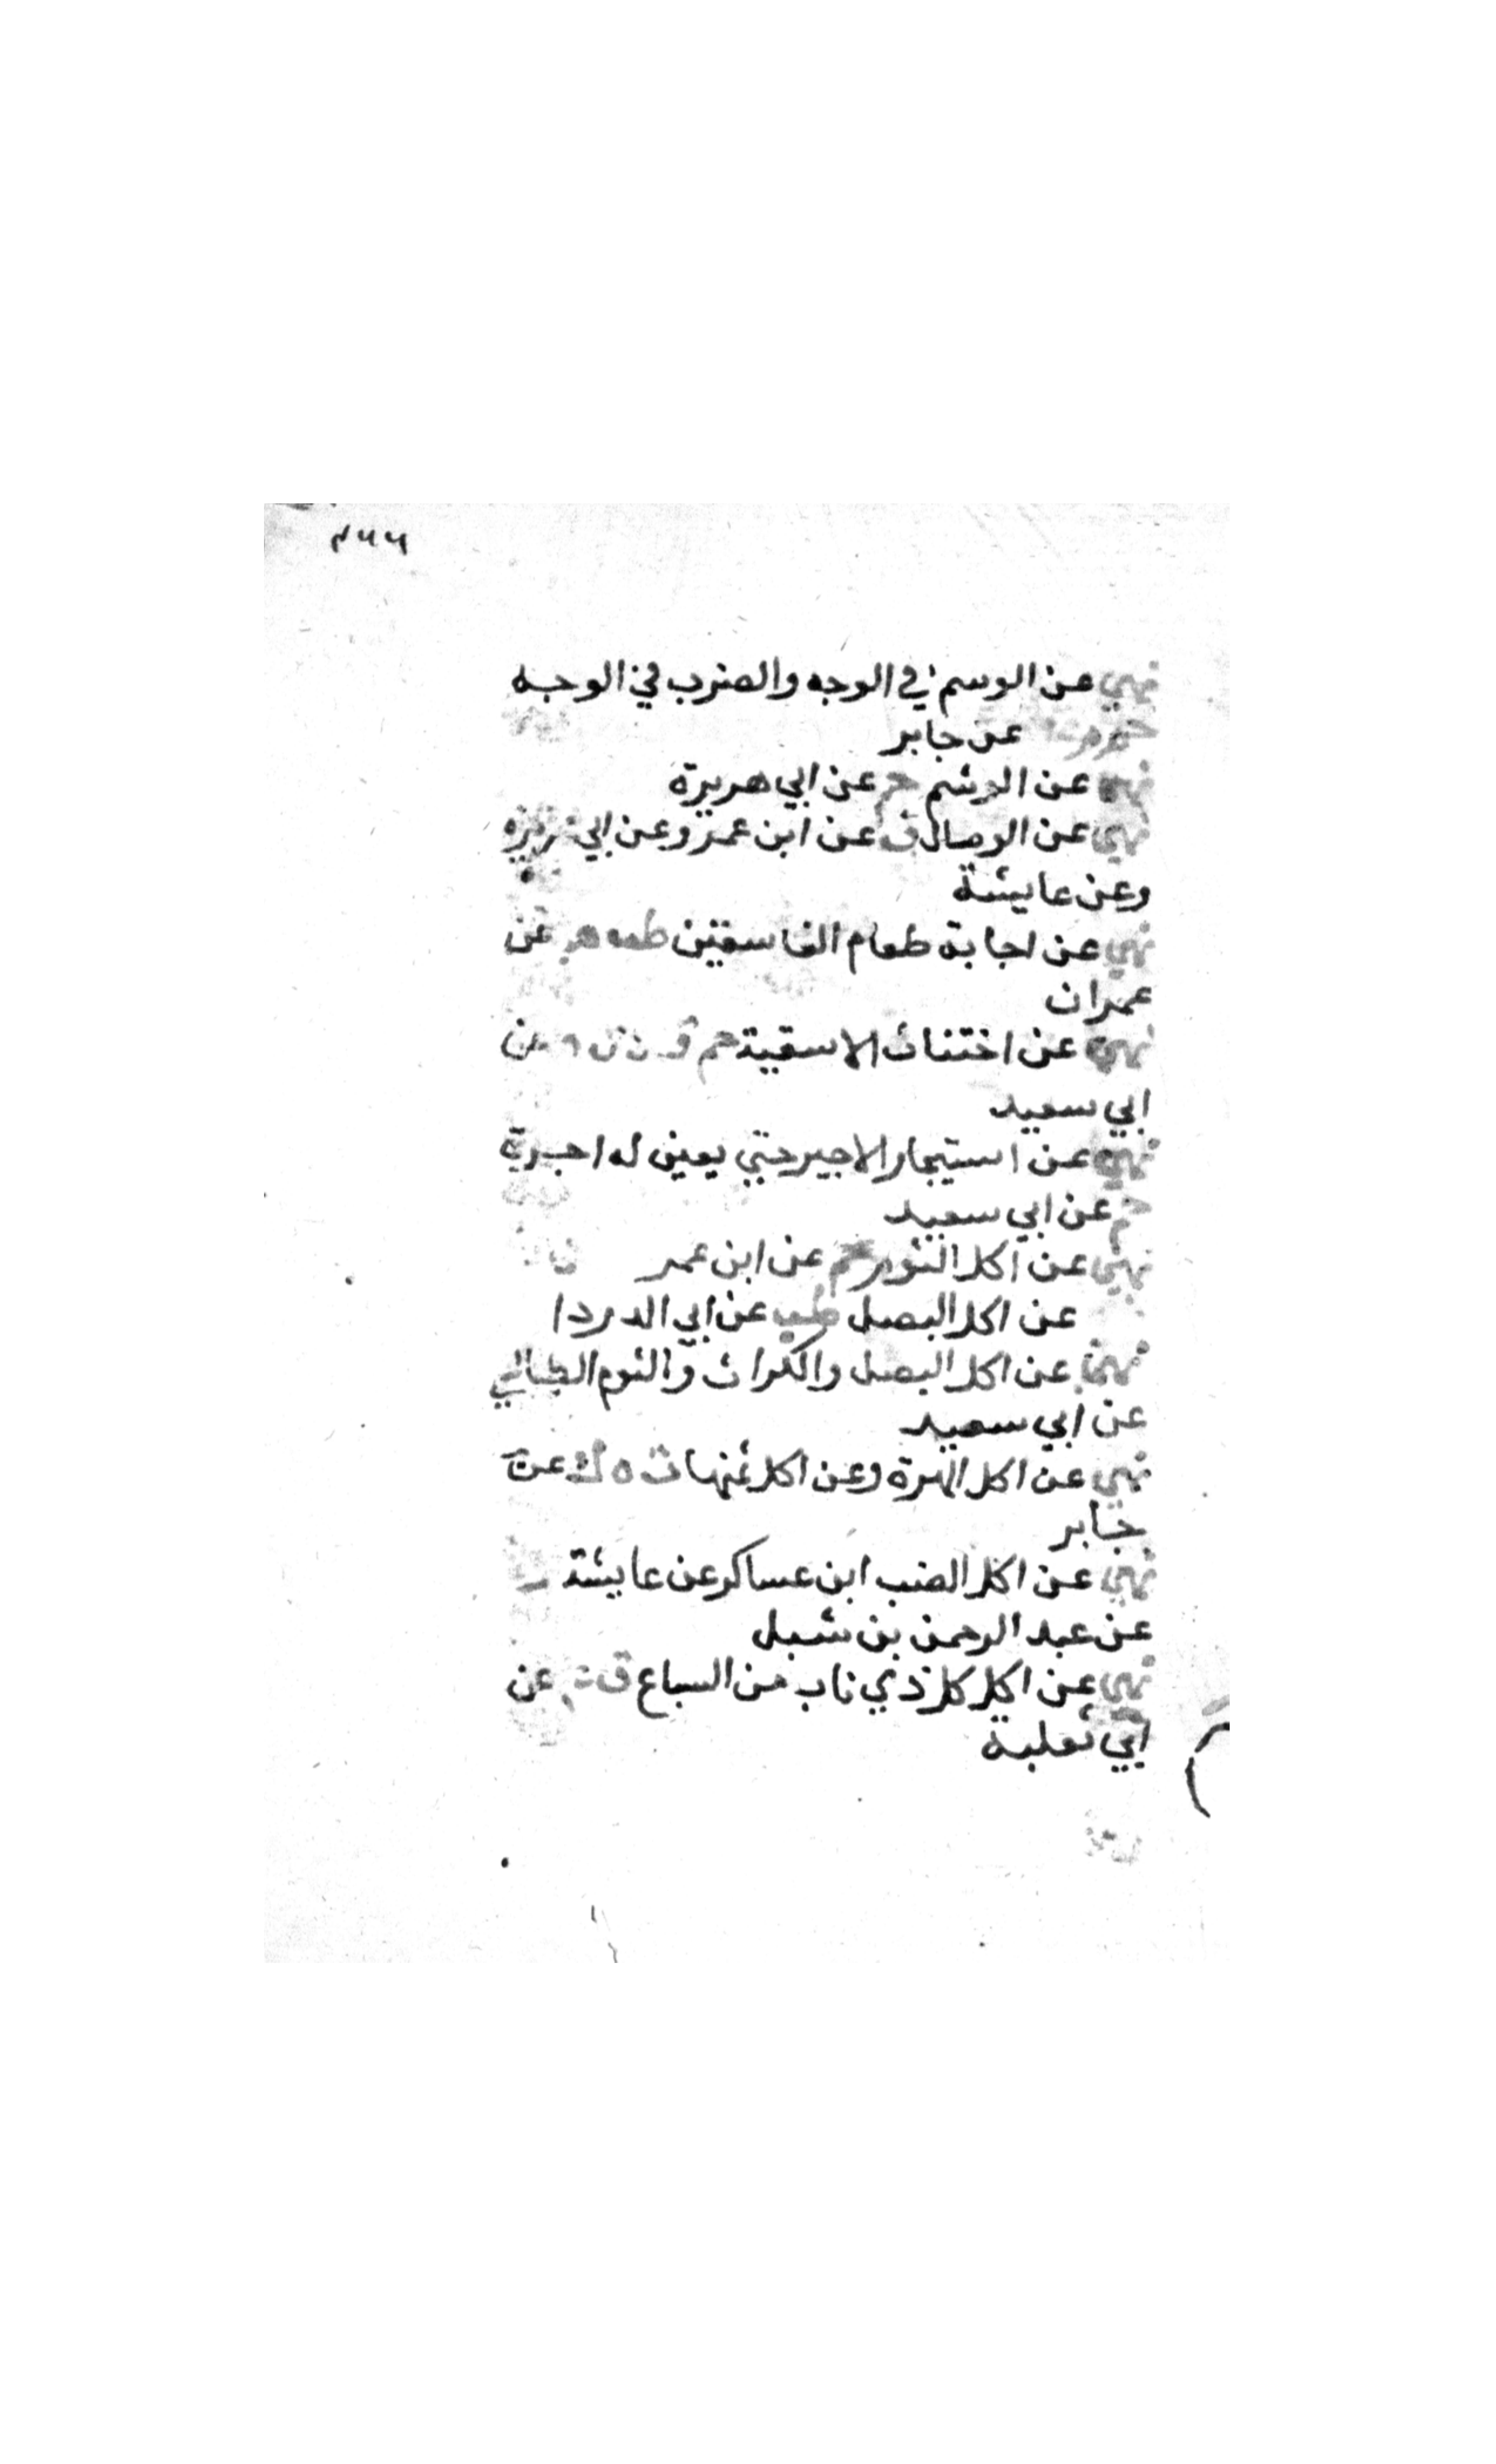 نهي عن الوسم في الوجه والضرب في الوجه
حم م ت عن جابر
نهي عن الوشم حم عن ابي هريرة
نهي عن الوصال ق عن ابن عمر وعن ابي هريرة
وعن عايشة
نهي عن اجابة طعام الفاسقين طب هب عن
عمران
نهي عن اختناث الاسقية حم ق د ت ه عن
ابي سعيد
نهي عن استيجار الاجير حتي يبين له اجرة
حم عن ابي سعيد
نهي عن اكل الثوم خ عن ابن عمر
عن اكل البصل طب عن ابي الدردا
نهي عن اكل البصل والكراث والثوم الطيالسي
عن ابي سعيد
نهي عن اكل الهرة وعن اكل ثمنها ت ه ك عن
جابر
نهي عن اكل الضب ابن عساكر عن عايشة
عن عبد الرحمن بن شبل
نهي عن اكل كل ذي ناب من السباع ق عن
ابي ثعلبة